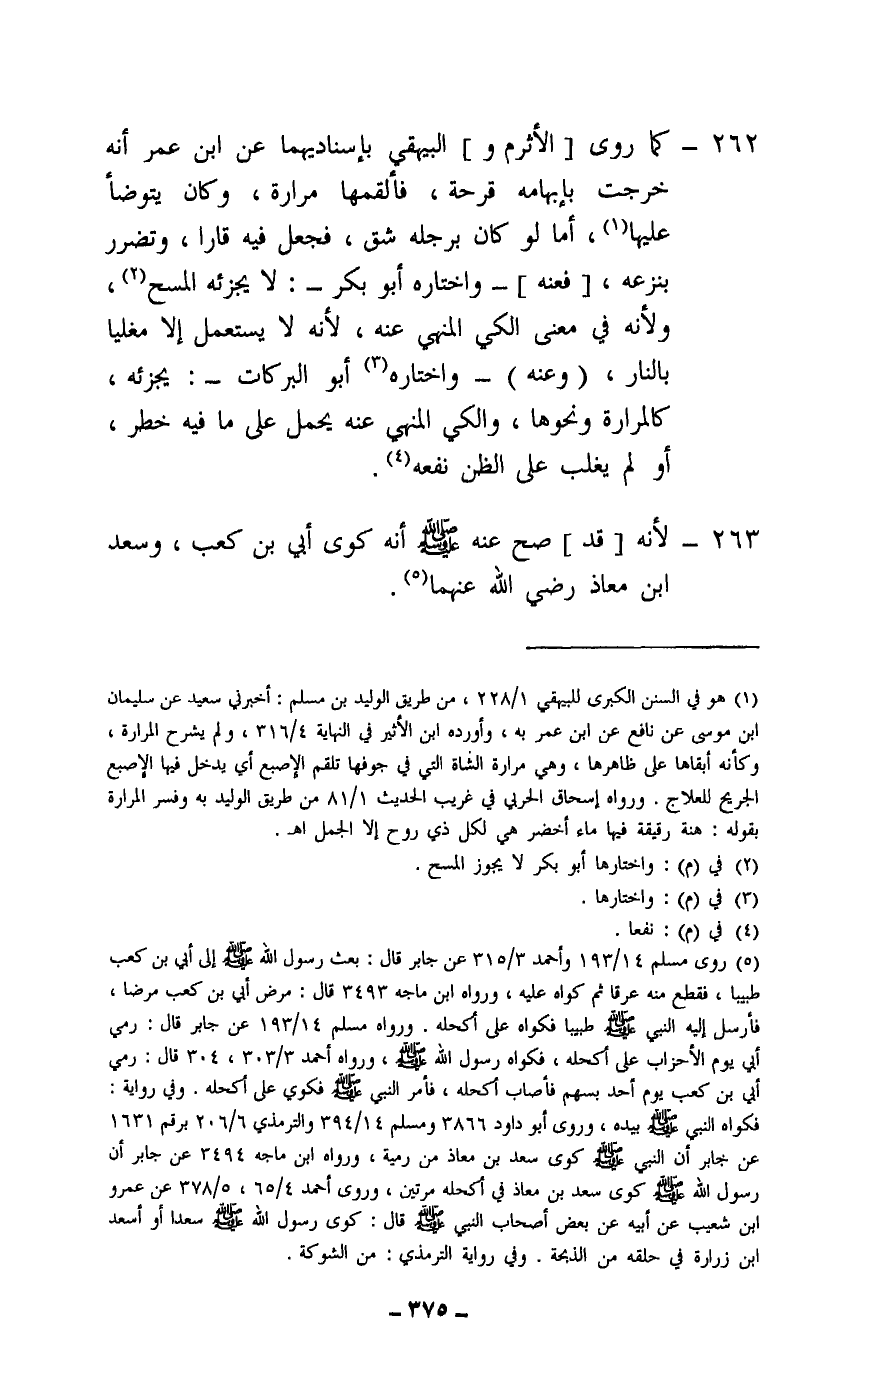 ٢٦٢ – كما روى [ الأثرم و ] البيهقي بإسناديهما عن ابن عمر أنه
خرجت بإبهامه قرحة ، فألقمها مرارة ، وكان يتوضأ
عليها(١) ، أما لو كان برجله شق ، فجعل فيه قارا ، وتضرر
بنزعه ، [ فعنه ] – واختاره أبو بكر – : لا يجزئه المسح(٢) ،
ولأنه في معنى الكي المنهي عنه ، لأنه لا يستعمل إلا مغليا
بالنار ، ( وعنه ) – واختاره(٣) أبو البركات – : يجزئه ،
كالمرارة ونحوها ، والكي المنهي عنه يحمل على ما فيه خطر ،
أو لم يغلب على الظن نفعه(٤) .
٢٦٣ – لأنه [ قد ] صح عنه ﷺ أنه كوى أبي بن كعب ، وسعد
ابن معاذ رضي الله عنهما(٥) .
(١) هو في السنن الكبرى للبيهقي ٢٢٨/١ ، من طريق الوليد بن مسلم : أخبرني سعيد عن سليمان
ابن موسى عن نافع عن ابن عمر به ، وأورده ابن الأثير في النهاية ٣١٦/٤ ، ولم يشرح المرارة ،
وكأنه أبقاها على ظاهرها ، وهي مرارة الشاة التي في جوفها تلقم الإصبع أي يدخل فيها الإصبع
الجريح للعلاج . ورواه إسحاق الحربي في غريب الحديث ٨١/١ من طريق الوليد به وفسر المرارة
بقوله : هنة رقيقة فيها ماء أخضر هي لكل ذي روح إلا الجمل اهـ .
(٢) في (م) : واختارها أبو بكر لا يجوز المسح .
(٣) في (م) : واختارها .
(٤) في (م) : نفعا .
(٥) روى مسلم ١٩٣/١٤ وأحمد ٣١٥/٣ عن جابر قال : بعث رسول الله ﷺ إلى أبي بن كعب
طبيبا ، فقطع منه عرقا ثم كواه عليه ، ورواه ابن ماجه ٣٤٩٣ قال : مرض أبي بن كعب مرضا ،
فأرسل إليه النبي ﷺ طبيبا فكواه على أكحله . ورواه مسلم ١٩٣/١٤ عن جابر قال : رمي
أبي يوم الأحزاب على أكحله ، فكواه رسول الله ﷺ ، ورواه أحمد ٣٠٣/٣ ، ٣٠٤ قال : رمي
أبي بن كعب يوم أحد بسهم فأصاب أكحله ، فأمر النبي ﷺ فكوي على أكحله . وفي رواية :
فكواه النبي ﷺ بيده ، وروى أبو داود ٣٨٦٦ ومسلم ٣٩٤/١٤ والترمذي ٢٠٦/٦ برقم ١٦٣١
عن جابر أن النبي ﷺ كوى سعد بن معاذ من رمية ، ورواه ابن ماجه ٣٤٩٤ عن جابر أن
رسول الله ﷺ كوى سعد بن معاذ في أكحله مرتين ، وروى أحمد ٦٥/٤ ، ٣٧٨/٥ عن عمرو
ابن شعيب عن أبيه عن بعض أصحاب النبي ﷺ قال : كوى رسول الله ﷺ سعدا أو أسعد
ابن زرارة في حلقه من الذبحة . وفي رواية الترمذي : من الشوكة .
– ٣٧٥ –